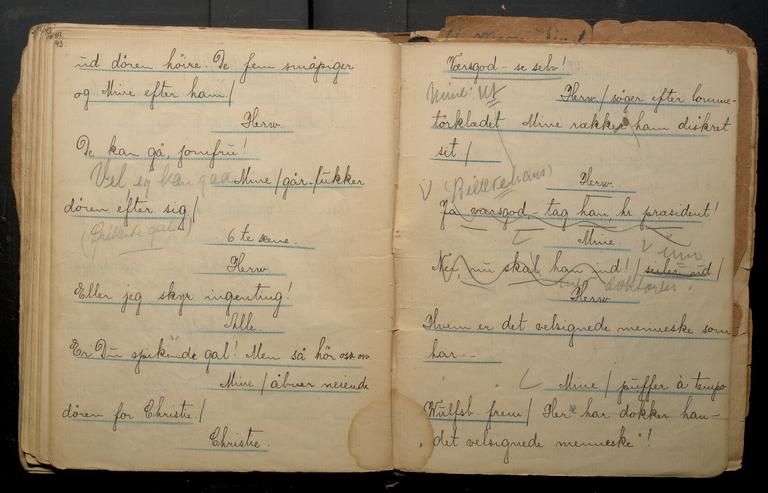 93
ud døren höire. De fem småpiger
og Mine efter ham /
Herw.
De kan gå, jomfru!
Vel eg kan gaa Mine / går. lukker
døren efter sig /
(Spillende gal)
6 te scene.
Herw
Eller jeg skyr ingenting!
Alle.
Er Du spikende gal! Men så hör
Mine / åbner neiende
dören for Christie /
Christie.
Værsgod – se selv!
Mine: ut
Herw. / söger efter lomme-
törklædet. Mine rækker ham diskret
sit /
Herw.
V (Billettens)
Ja værsgod – tag han, hr president!
Mine. V inn
Nei, nu skal han ind! / seiler ud /
doktoren.
Herw
Hvem er det velsignede menneske som
har –
Mine / puffer à tempo
Wulfsb. frem / Her har dokker han –
"det velsignede menneske"!